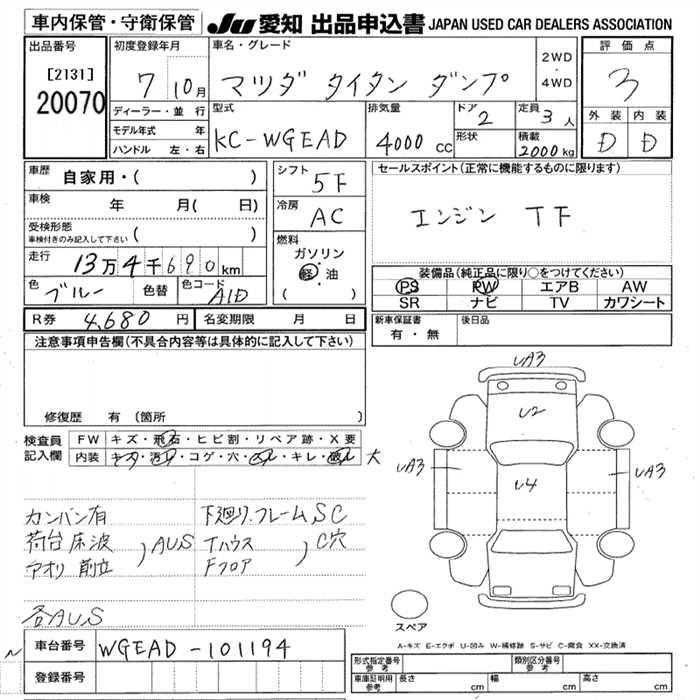 車内保管・守衛保管 JU 愛知 出品申込書 JAPAN USED CAR DEALERS ASSOCIATION
出品番号 初度登録年月 車名・グレード 2WD・4WD 評価点
[2131] 7 10月 マツダ タイタン ダンプ 3
20070
ディーラー・並行 型式 排気量 ドア 定員 外装 内装
モデル年式 年 KC-WGEAD 4000cc 2 3人 D D
ハンドル 左・右 形状 積載 2000kg
車歴 自家用・( ) シフト 5F セールスポイント(正常に機能するものに限ります)
車検 年 月( 日) 冷房 AC エンジン TF
受検形態 ( )
車検付きのみ記入して下さい
燃料
走行 13万4千690km ガソリン
軽・油
( )
装備品(純正品に限り○をつけてください)
色 ブルー 色替 色コード A1D PS PW エアB AW
SR ナビ TV カワシート
R券 4,680円 名変期限 月 日 新車保証書 有・無 後日品
注意事項申告欄(不具合内容等は具体的に記入して下さい)
修復歴 有 (箇所 )
検査員記入欄 FW キズ・飛石・ヒビ割・リペア跡・X要
内装 キズ・汚れ・コゲ・穴・ヌレ・キレ・破れ 大
UA3
U2
UA3 U4 UA3
カンバン有 下廻り.フレームSC
荷台床波 , AUS Tハウス , C穴
アオリ 前立 Fフロア
各AUS
スペア
A-キズ E-エクボ U-凹み W-補修跡 S-サビ C-腐食 XX-交換済
車台番号 WGEAD-101194
登録番号
形式指定番号 参考 類別区分番号 参考
車庫証明用 参考 長さ cm 幅 cm 高さ cm